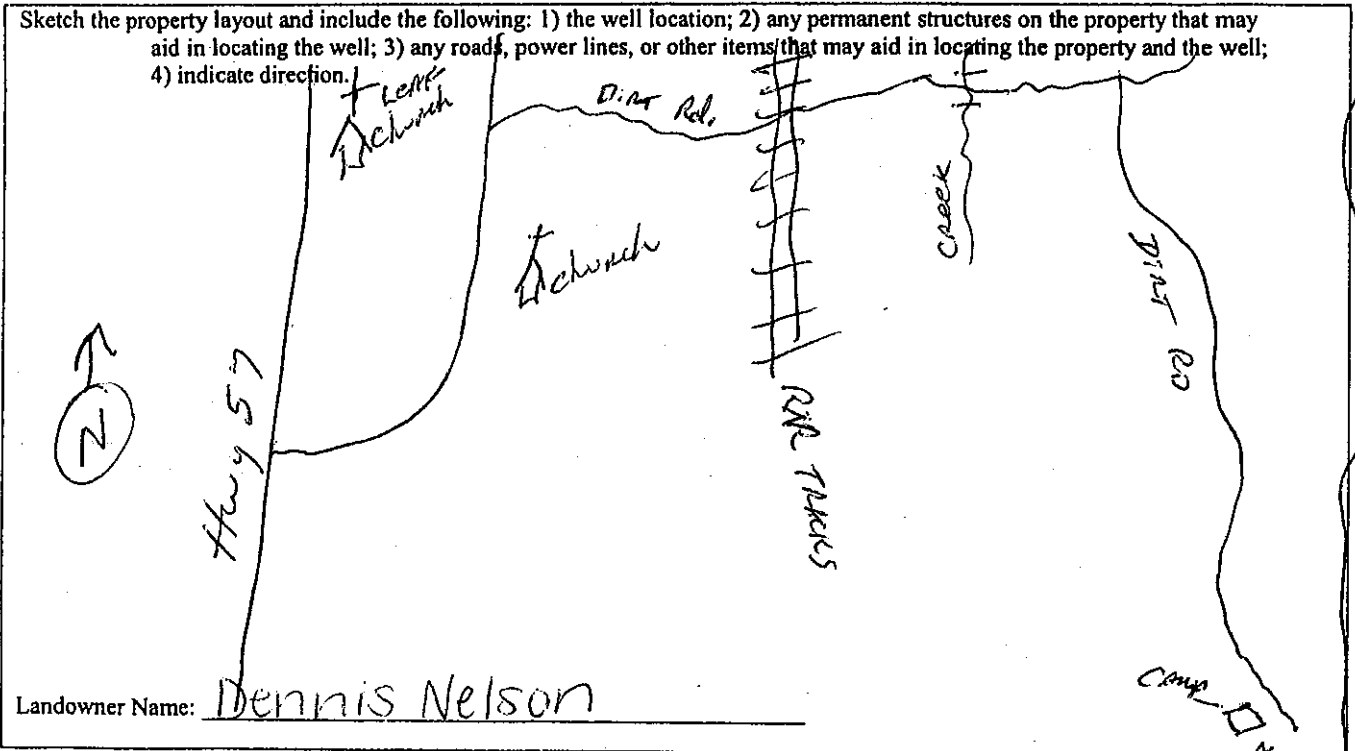 Sketch the property layout and include the following: 1) the well location; 2) any permanent structures on the property that may
aid in locating the well; 3) any roads, power lines, or other items that may aid in locating the property and the well;
4) indicate direction.
Leaf
Church
Dirt Rd.
Church
Creek
Dirt RD
N
Hwy 57
R/R Tracks
Camp
Landowner Name: Dennis Nelson